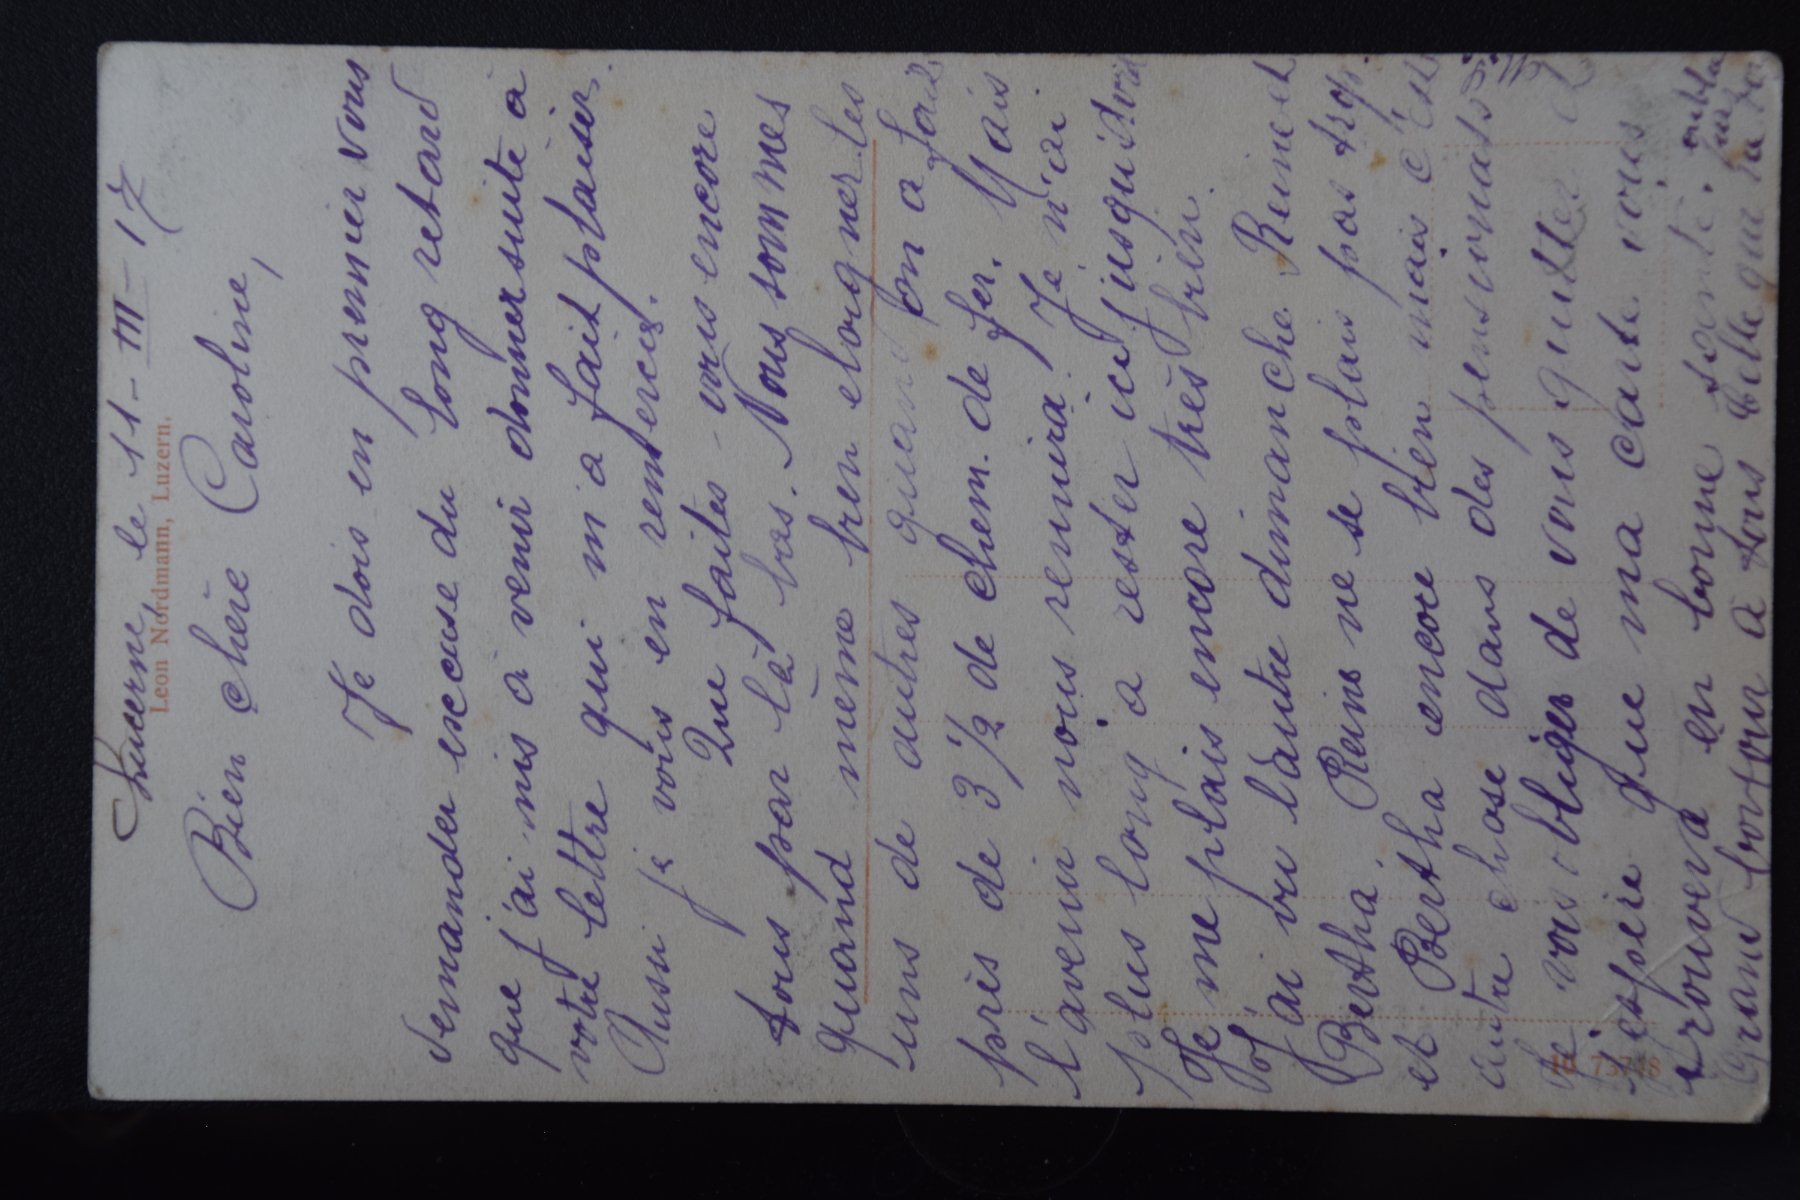 Lucerne le 11-III-17
Leon Nordmann, Luzern.
Bien chère Caroline,
Je dois en premier vous
demander excuse du long retard
que j'ai mis à venir donner suite à
votre lettre qui m'a fait plaisir.
Aussi je vous en remercie.
Que faites-vous encore
tous par là bas. Nous sommes
quand même bien elougner les
uns de autres quand on a
près de 3 1/2 de chem. de fer. Mais
l'avenir nous reunira. Je n'ai
plus long a rester ici jusqu'id
Je me plais encore très bien.
J'ai vu l'autre dimanche Reine et
Bertha. Reine ne se plais pas trop.
et Bertha encore bien mais c'est
autre chose dans des pensionats
Je vais obliger de vous quitter et
j'espère que ma carte vous
trouvera en bonne santé.
Grand bonjour a tous
No 73748